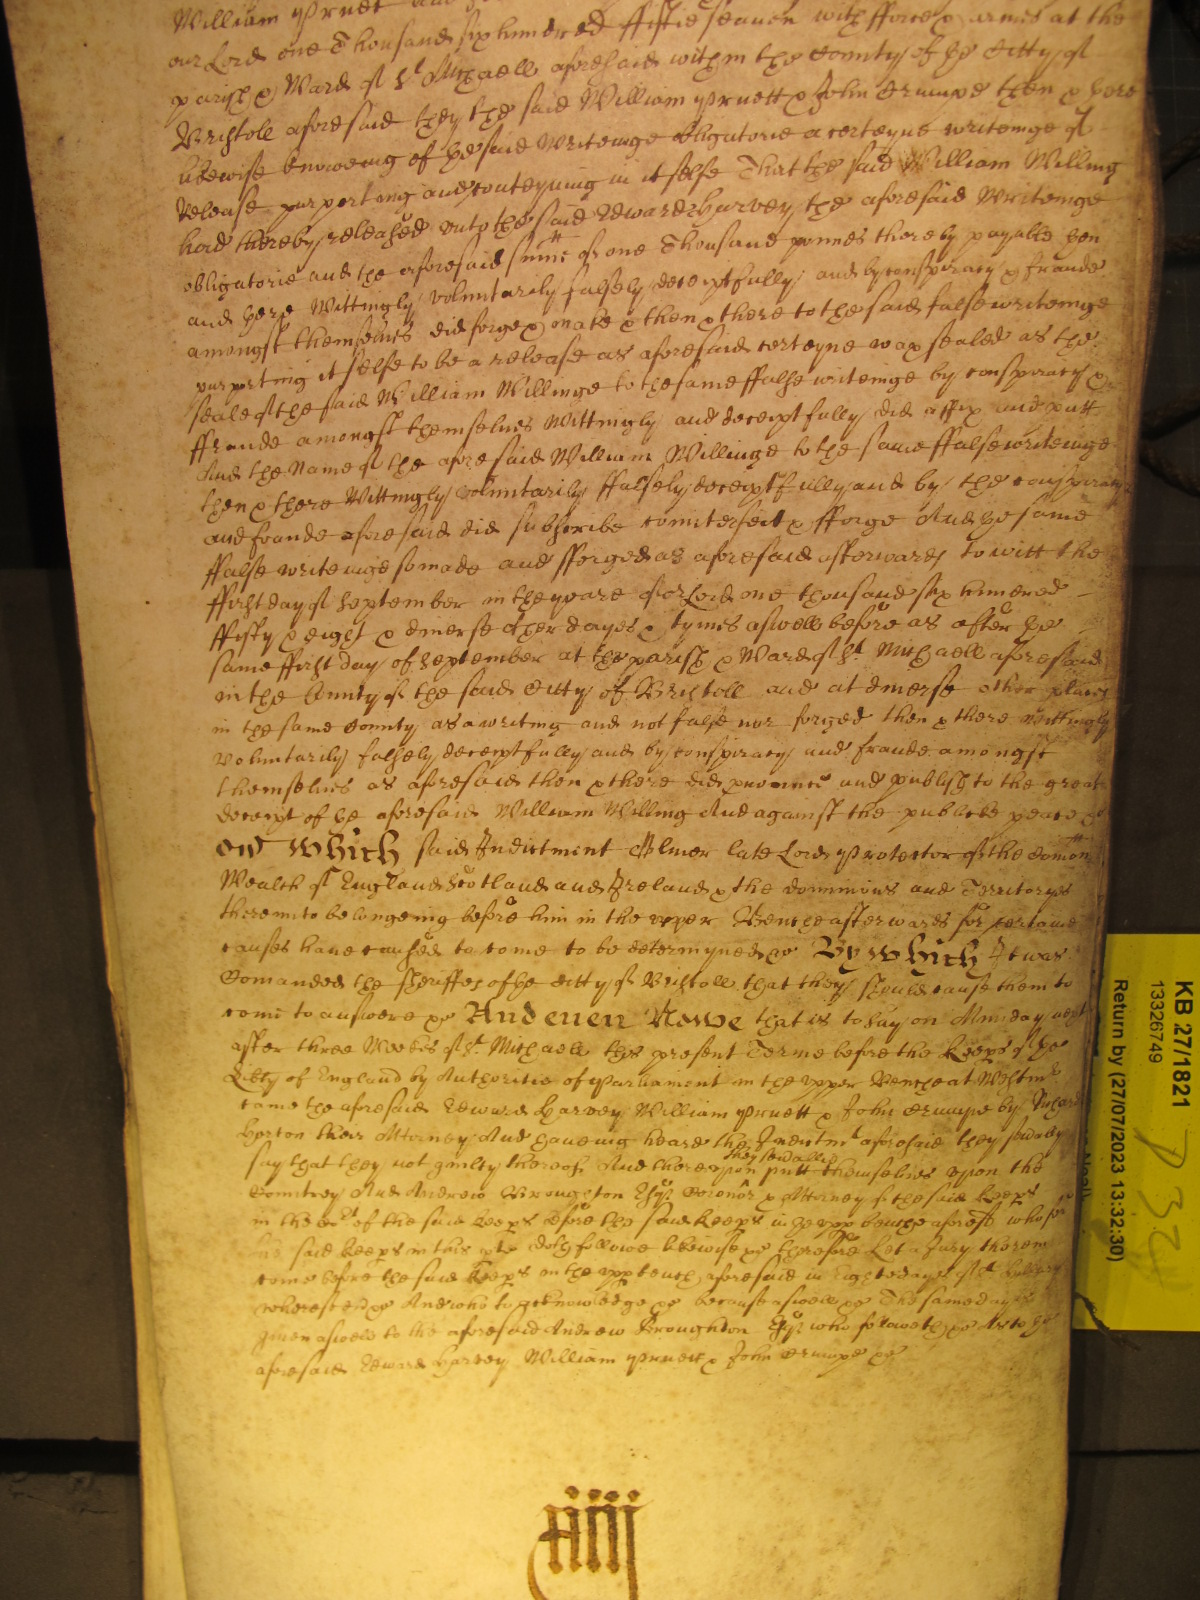 William Pruet and
our Lord one Thousand six hundred ffiftie seaven with fforce & armes at the
parish & Ward of St Michaell aforesaid within the County of the Citty of
Bristoll aforesaid they the said William Pruett & John Crumpe then & there
likewise knoweing of the said Writeinge obligatorie a certeyne writeinge of
Release purporting and conteyning in it selfe That the said William Willing
had thereby released unto the said Edward Harvey the aforesaid Writeinge
obligatorie and the aforesaid summe of one Thousand pounds thereby payable then
and there Wittingly voluntarily falsely deceiptfully and by conspiracy & fraude
amongst themselves did forge & make & then & there to the said false writeinge
purporting it selfe to be a release as aforesaid certeyne wax sealed as the
seale of the said William Willinge to the same ffalse writeinge by conspiracy &
ffraude amongst themselves Wittingly and deceiptfully did affix and putt
And the Name of the aforesaid William Willinge to the same ffalse writeinge
then & there Wittingly voluntarily ffalsely deceiptfully and by the conspiracy
and fraude aforesaid did subscribe counterfeit & fforge And the same
ffalse writeinge so made and fforged as aforesaid afterwards to witt the
ffirst day of September in the yeare of or Lord one thousand six hundred
ffifty & eight & diverse other dayes & tymes aswell before as after the
same ffirst day of September at the parish & Ward of St Michaell aforesaid
in the County of the said Citty of Bristoll and at diverse other places
in the same County as a writing and not false nor forged then & there wittingly
voluntarily falsely deceiptfully and by conspiracy and fraude amongst
themselves as aforesaid then & there did pronounce and publish to the great
deceipt of the aforesaid William Willing And against the publicke peace &c
Which said Indictment Oliver late Lord Protector of the Common
Wealth of England Scotland and Ireland & the dominions and Territoryes
thereunto belongeing before him in the upper Benche afterwards for certaine
causes have caused to come to be determyned &c By which It was
Comanded the Sheriffes of the Citty of Bristoll that they should cause them to
come to answere &c And even Nowe that is to say on Munday next
after three Weekes of St Michaell this present Terme before the Keeps of the
Lib'ty of England by Authoritie of Parliament in the upper Benche at Westmr
came the aforesaid Edward Harvey William Pruett & John Crumpe by Richard
Horton their Attorney And haveing heard the Indictmt aforesaid they sevally
say that they not guilty thereof And thereupon they sevallie putt themselves upon the
Countrey And Andrew Broughton Esqr Coronor & Attorney of the said keeps
in the of the said keeps before the said keeps in the upp benche aforesd who for
the said keeps in this pte doth followe likewise &c therefore Let a Jury therein
come before the said keeps in the upp bench aforesaid in Eight dayes of St Hillary
wheresoever &c And who to acknowledge &c because aswell &c The same day is
given aswell to the aforesaid Andrew Broughton Esqr who foloweth &c As to the
aforesaid Edward Harvey William Pruett & John Crumpe &c
KB 27/1821
13326749
Return by (27/07/2023 13:32:30)